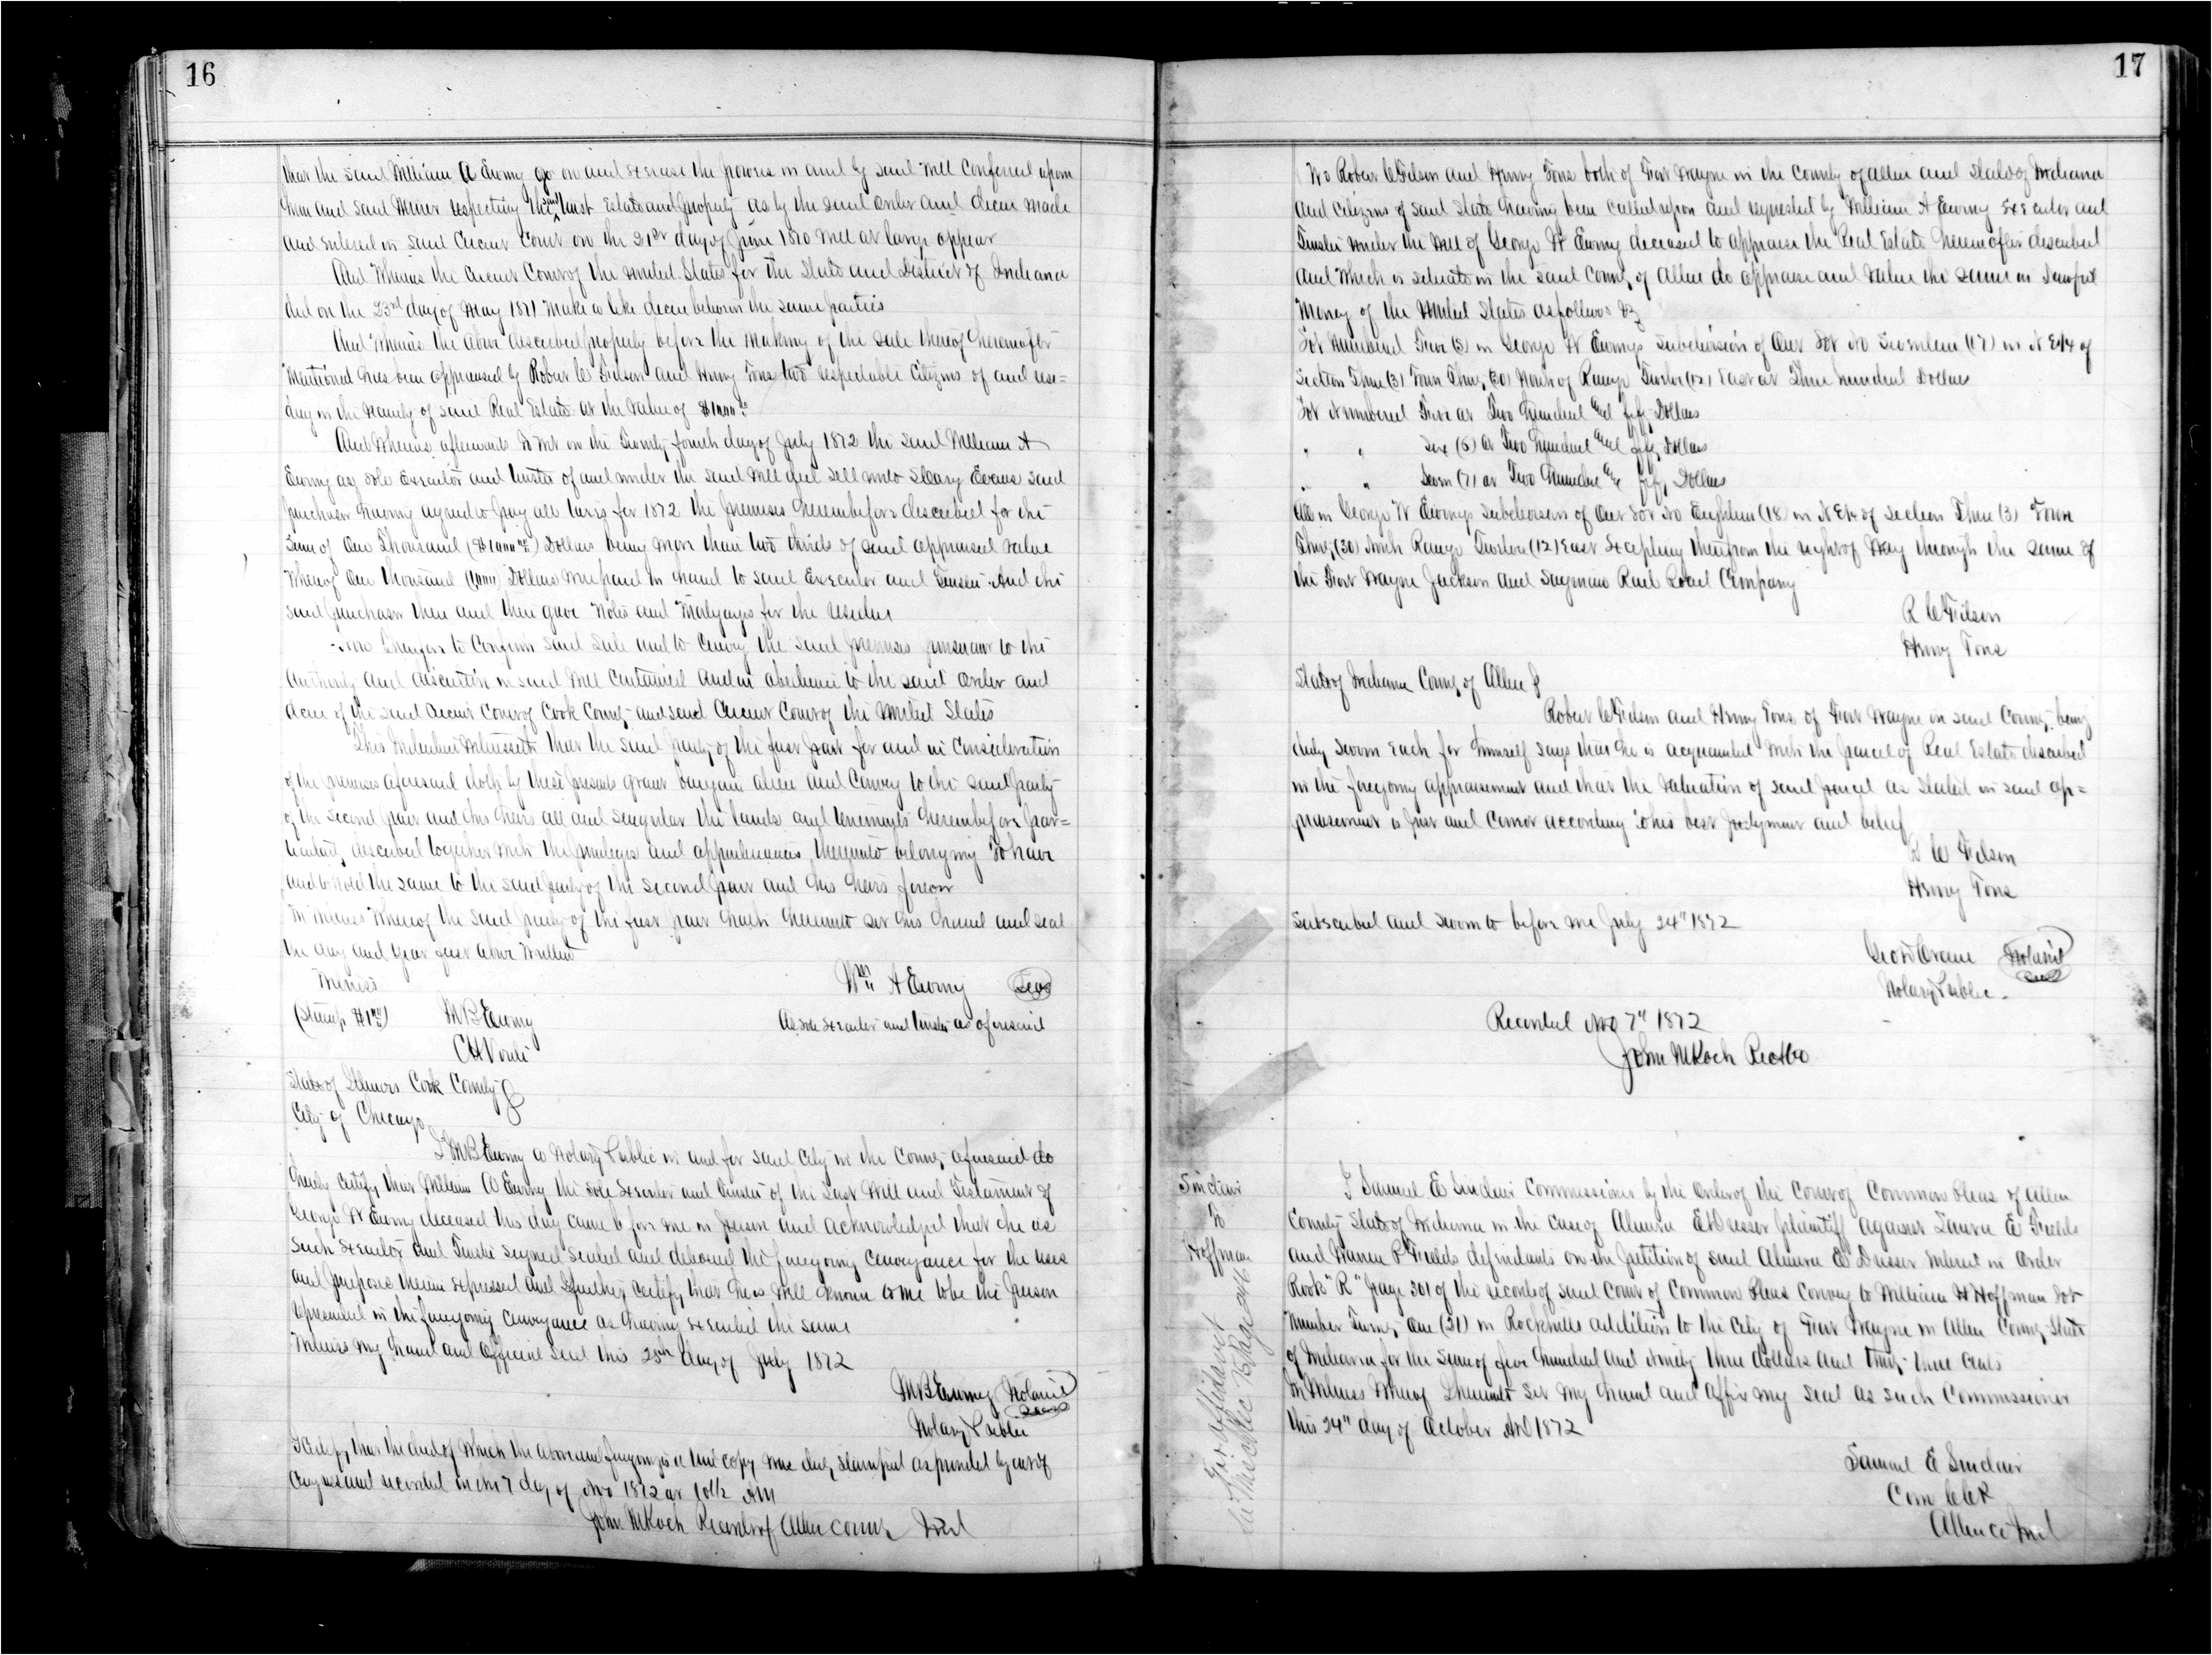 16
that the said William A Ewing go on and exercise the powers in and by said Will Conferred upon
him and said Miner respecting the said trust Estate and Property as by the said order and decree made
and entered in said Circuit Court on the 21st day of June 1870 Will at large appear
And Whereas the Circuit Court of the United States for the State and District of Indiana
did on the 23rd day of May 1871 make a like decree between the same parties
And Whereas the above described property before the making of the sale thereof hereinafter
mentioned has been appraised by Robert W Filson and Henry Tons two respectable Citizens of and resi=
ding in the County of said Real Estate at the value of $1000 00
And Whereas afterwards to Wit on the Twenty fourth day of July 1872 the said William A
Ewing as sole Executor and trustee of and under the said Will did sell unto Evans said
purchaser having agreed to pay all taxes for 1872 the premises hereinbefore described for the
Sum of One Thousand ($1000 00) Dollars being more than two thirds of said appraised value
Whereof One thousand (1000) Dollars was paid in hand to said Executor and Trustee And the
said purchaser then and there gave Notes and Mortgages for the residue
Now therefore to Confirm said sale and to Convey the said premises pursuant to the
authority and discretion in said Will Contained and in obedience to the said order and
decree of the said Circuit Court of Cook County and said Circuit Court of the United States
This Indenture Witnesseth that the said party of the first part for and in Consideration
of the premises aforesaid doth by these presents grant bargain alien and Convey to the said party
of the second part and his heirs all and singular the lands and tenements hereinbefore par=
ticularly described together with the privileges and appurtenances thereunto belonging To have
and to hold the same to the said party of the second part and his heirs forever
In Witness Whereof the said party of the first part hath hereunto set his hand and seal
the day and year first above Written
Witness Wm A Ewing Seal
(Stamp $1 00) M B Ewing As sole Executor and trustee as aforesaid
State of Illinois Cook County
City of Chicago
I M B Ewing a Notary Public in and for said City in the County aforesaid do
hereby certify that William A Ewing the sole Executor and Trustee of the Last Will and Testament of
George W Ewing deceased this day came before me in person and acknowledged that he as
such Executor and Trustee signed sealed and delivered the foregoing Conveyance for the uses
and purposes therein expressed and I further certify that he is well known to me to be the person
represented in the foregoing Conveyance as having executed the same
Witness my hand and Official Seal this 25th day of July 1872
M B Ewing Notarial Seal
Notary Public
I Certify that the deed of Which the above and foregoing is a true copy was duly stamped as provided by act of
Congress and recorded on the 7 day of Nov 1872 at 10½ AM
John M Koch Recorder of Allen County Ind
17
We Robert W Filson and Henry Tons both of Fort Wayne in the County of Allen and State of Indiana
and Citizens of said State having been called upon and requested by William A Ewing Executor and
Trustee under the Will of George W Ewing deceased to appraise the Real Estate hereinafter described
and Which is situate in the said County of Allen do appraise and value the same in Lawful
Money of the United States as follows
Lot Numbered Five (5) in George W Ewings Subdivision of Out Lot No Seventeen (17) in N E¼ of
Section Three (3) Town Thirty (30) North of Range Twelve (12) East at Three hundred Dollars
Lot Numbered Five at Two hundred and fifty Dollars
" " Six (6) at Two hundred and fifty Dollars
" " Seven (7) at Two hundred and fifty Dollars
All in George W Ewings Subdivision of Out Lot No Eighteen (18) in N E¼ of Section Three (3) Town
Thirty (30) North Range Twelve (12) East Excepting therefrom the right of Way through the same of
the Fort Wayne Jackson and Saginaw Rail Road Company
R W Filson
Henry Tons
State of Indiana County of Allen
Robert W Filson and Henry Tons of Fort Wayne in said County being
duly sworn each for himself says that he is acquainted with the parcel of Real Estate described
in the foregoing appraisement and that the Valuation of said parcel as stated in said ap=
praisement is just and correct according to his best judgment and belief
R W Filson
Henry Tons
Subscribed and sworn to before me July 24" 1872
Notarial Seal
Notary Public
Recorded Nov 7" 1872
John M Koch
Sinclair
To
Hoffman
For affidavit
see Miscellec Page 246
I Samuel E Sinclair Commissioner by the Order of the Court of Common Pleas of Allen
County State of Indiana in the Case of Almira E Dresser plaintiff against Laura E Fields
and Warren P Fields defendants on the petition of said Almira E Dresser entered in Order
Book "R" page 301 of the records of said Court of Common Pleas Convey to William H Hoffman Lot
Number Twenty One (21) in Rockhills addition to the City of Fort Wayne in Allen County State
of Indiana for the sum of five hundred and Ninety three dollars and thirty three Cents
In Witness Whereof I hereunto set my hand and affix my seal as such Commissioner
this 24" day of October AD 1872
Samuel E Sinclair
Allen Co Ind